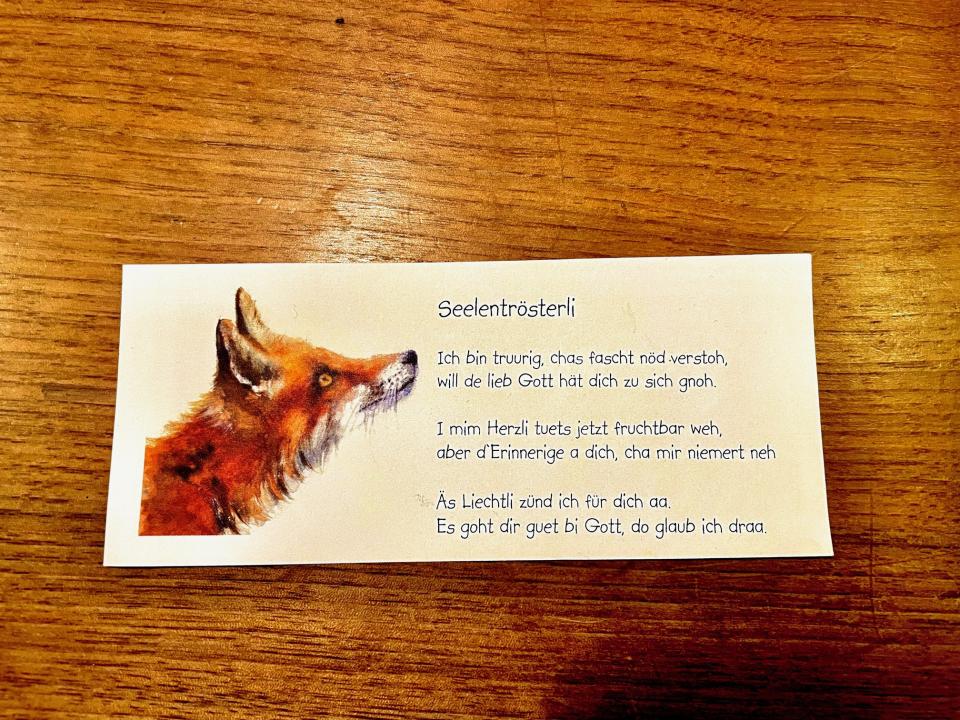 Seelentrösterli
Ich bin truurig, chas fascht nöd verstoh,
will de lieb Gott hät dich zu sich gnoh.
I mim Herzli tuets jetzt fruchtbar weh,
aber d'Erinnerige a dich, cha mir niemert neh
Äs Liechtli zünd ich für dich aa.
Es goht dir guet bi Gott, do glaub ich draa.